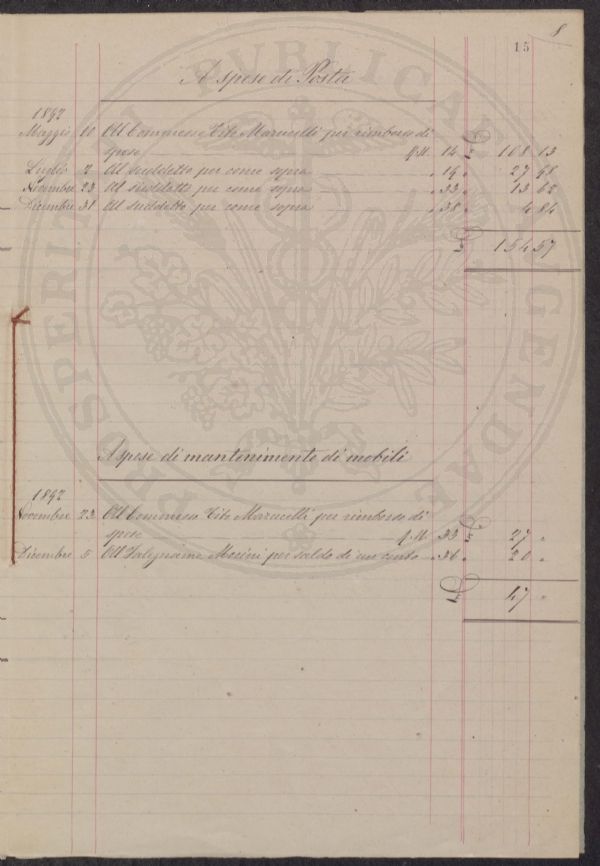 8
15
A spese di Posta
1892
Maggio 10 Al Commesso Tito Marucelli per rimborso di
spese Q.M. 14 £ 108 13
Luglio 2 Al suddetto per come sopra " 19 " 27 98
Novembre 23 Al suddetto per come sopra " 33 " 13 62
Dicembre 31 Al suddetto per come sopra " 38 " 4 84
£ 154 57
A spese di mantenimento di mobili
1892
Novembre 23 Al Commesso Tito Marucelli per rimborso di
spese Q.M. 33 £ 27 "
Dicembre 5 Al Falegname per saldo di un conto " 36 " 20 "
£ 47 "
PROSPERITATI PVBLICAE AVGENDAE